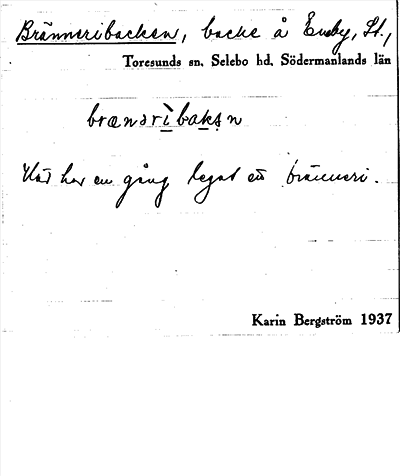 Bränneribacken, backe å Eneby, St.,
Toresunds sn. Selebo hd. Södermanlands län
brænəribakən
Här har en gång legat ett bränneri.
Karin Bergström 1937